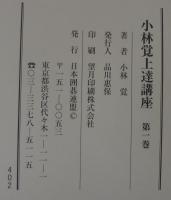 小林覚上達講座 第一巻
著者 小林 覚
発行人 品川惠保
印刷 望月印刷株式会社
発行 日本囲碁連盟©
〒一五一-〇〇五三
東京都渋谷区代々木一-一一-一
☎〇三-三三七八-五一一五
402